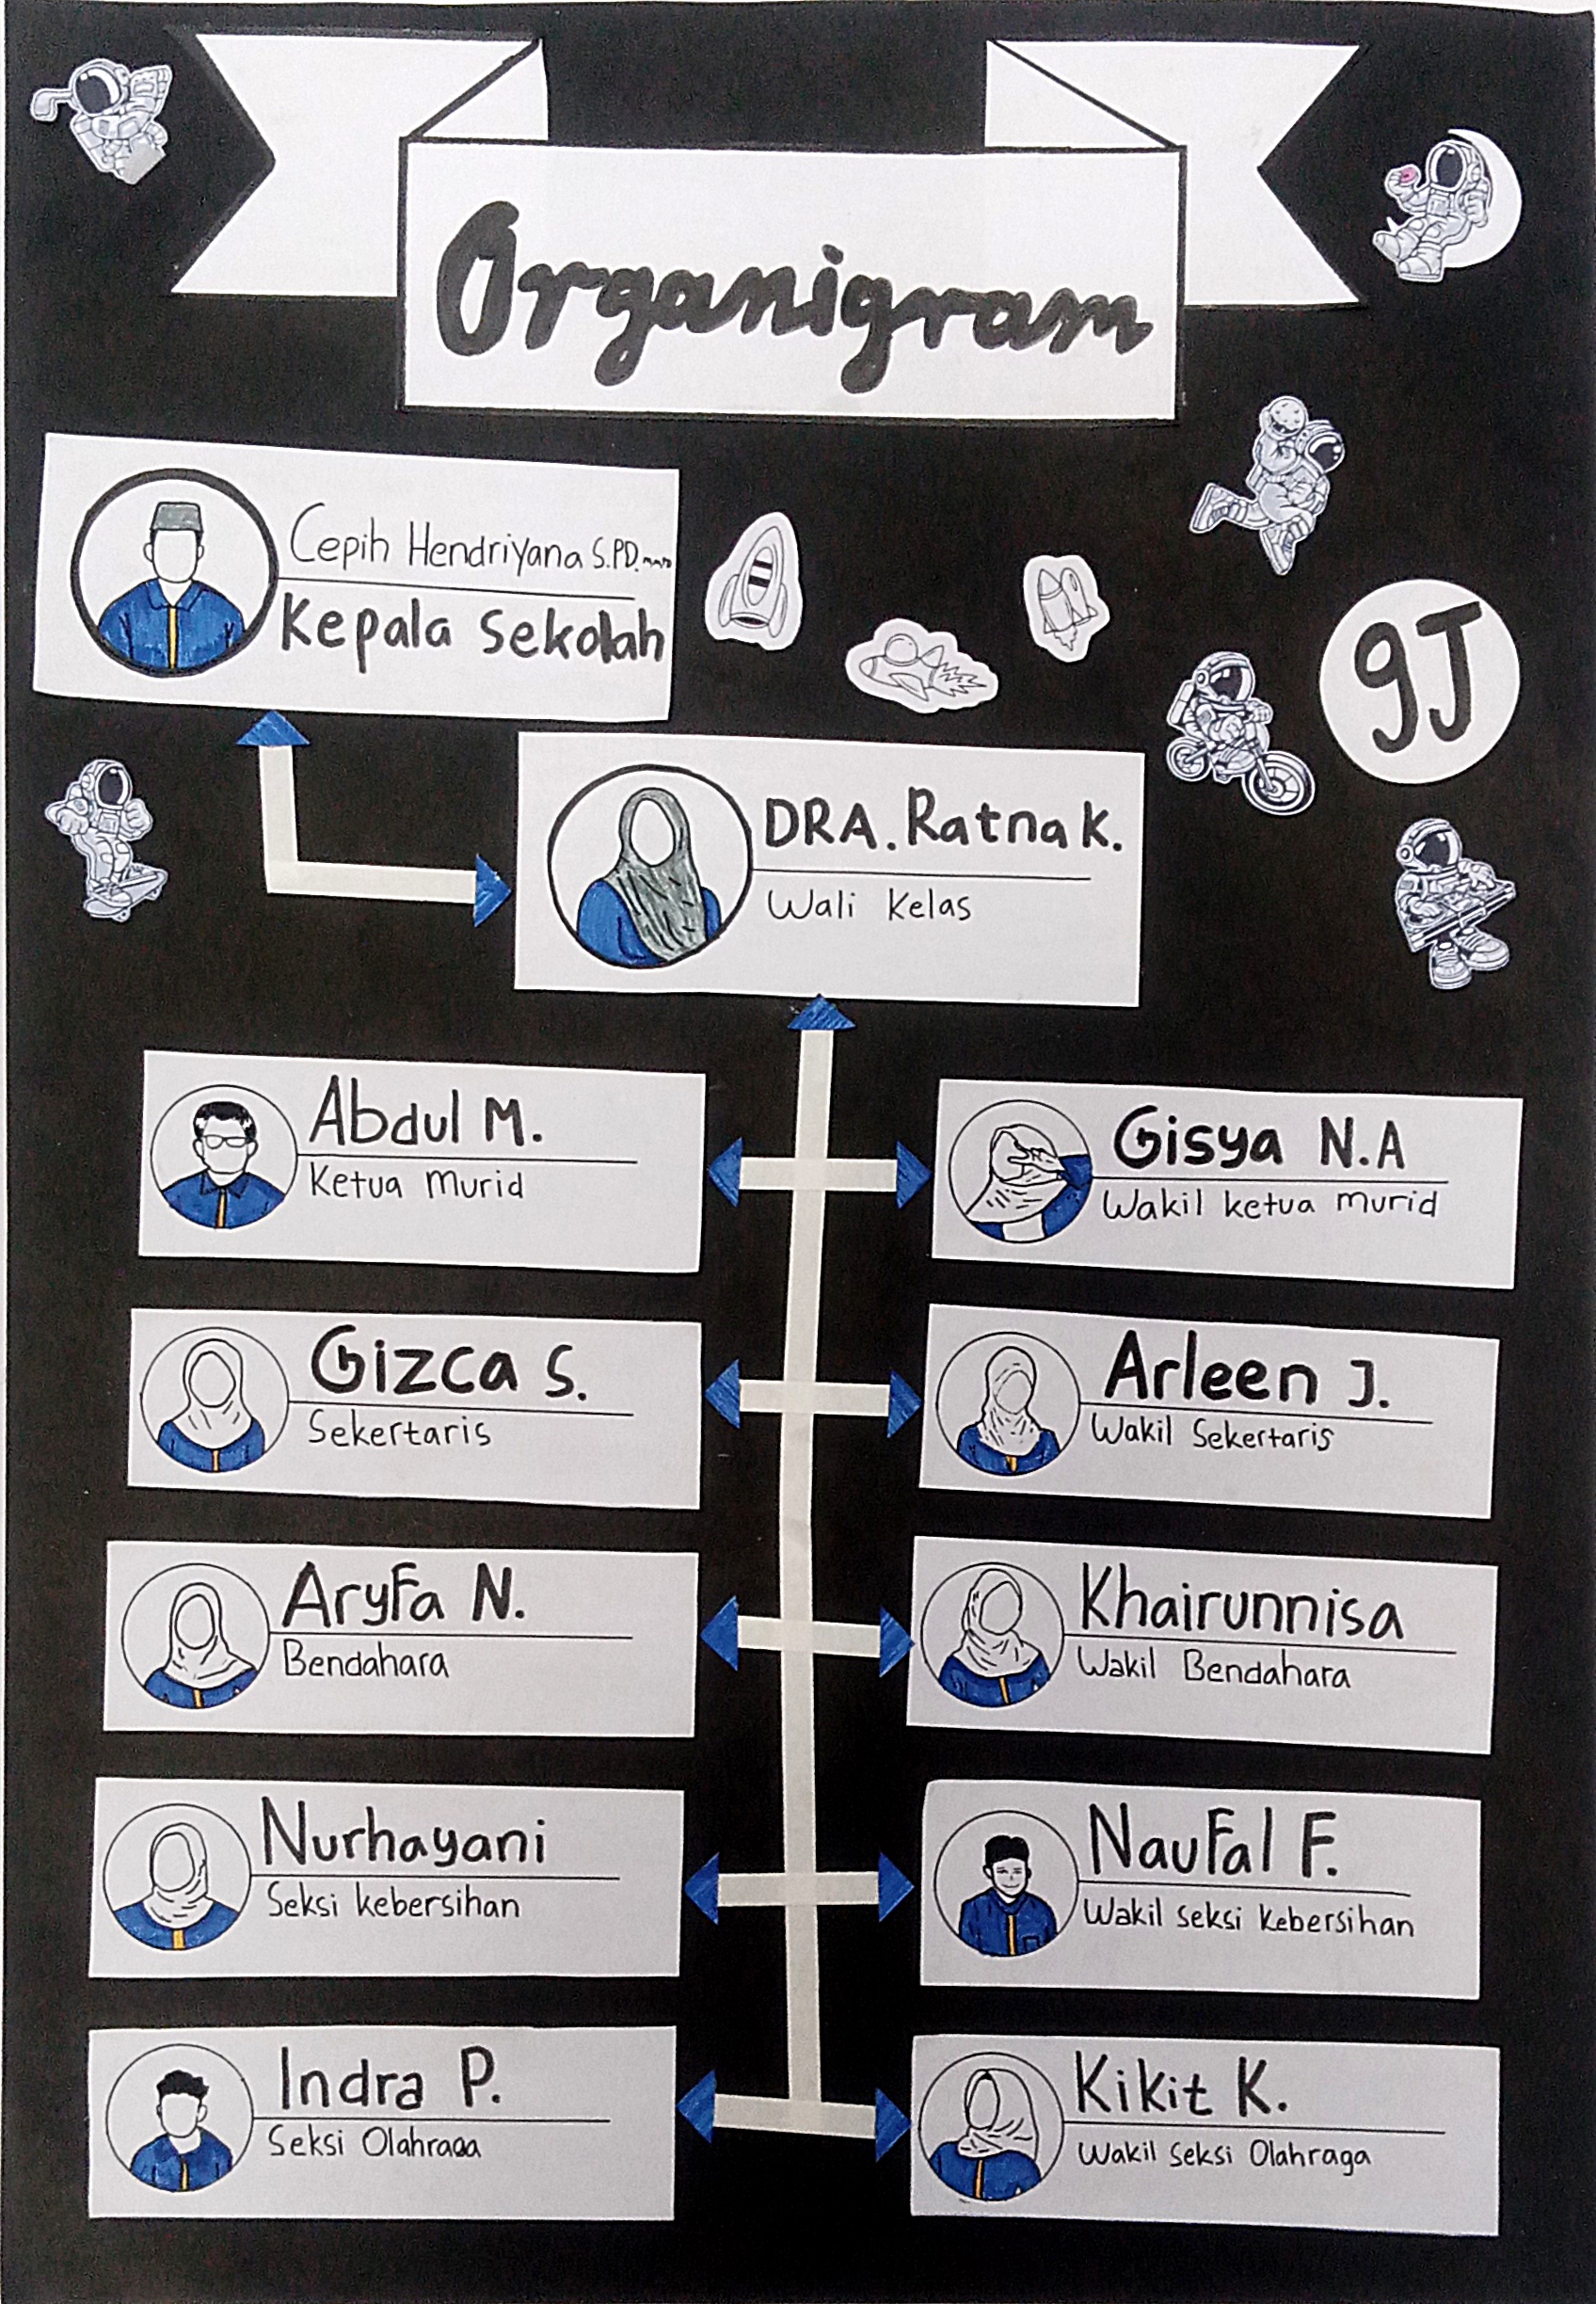 Organigram
Cepih Hendriyana S.PD.
Kepala Sekolah
9J
DRA. Ratna K.
Wali Kelas
Abdul M.
Ketua Murid
Gisya N.A
Wakil Ketua Murid
Gizca S.
Sekertaris
Arleen J.
Wakil Sekertaris
Aryfa N.
Bendahara
Khairunnisa
Wakil Bendahara
Nurhayani
Seksi Kebersihan
Naufal F.
Wakil Seksi Kebersihan
Indra P.
Seksi Olahraga
Kikit K.
Wakil Seksi Olahraga